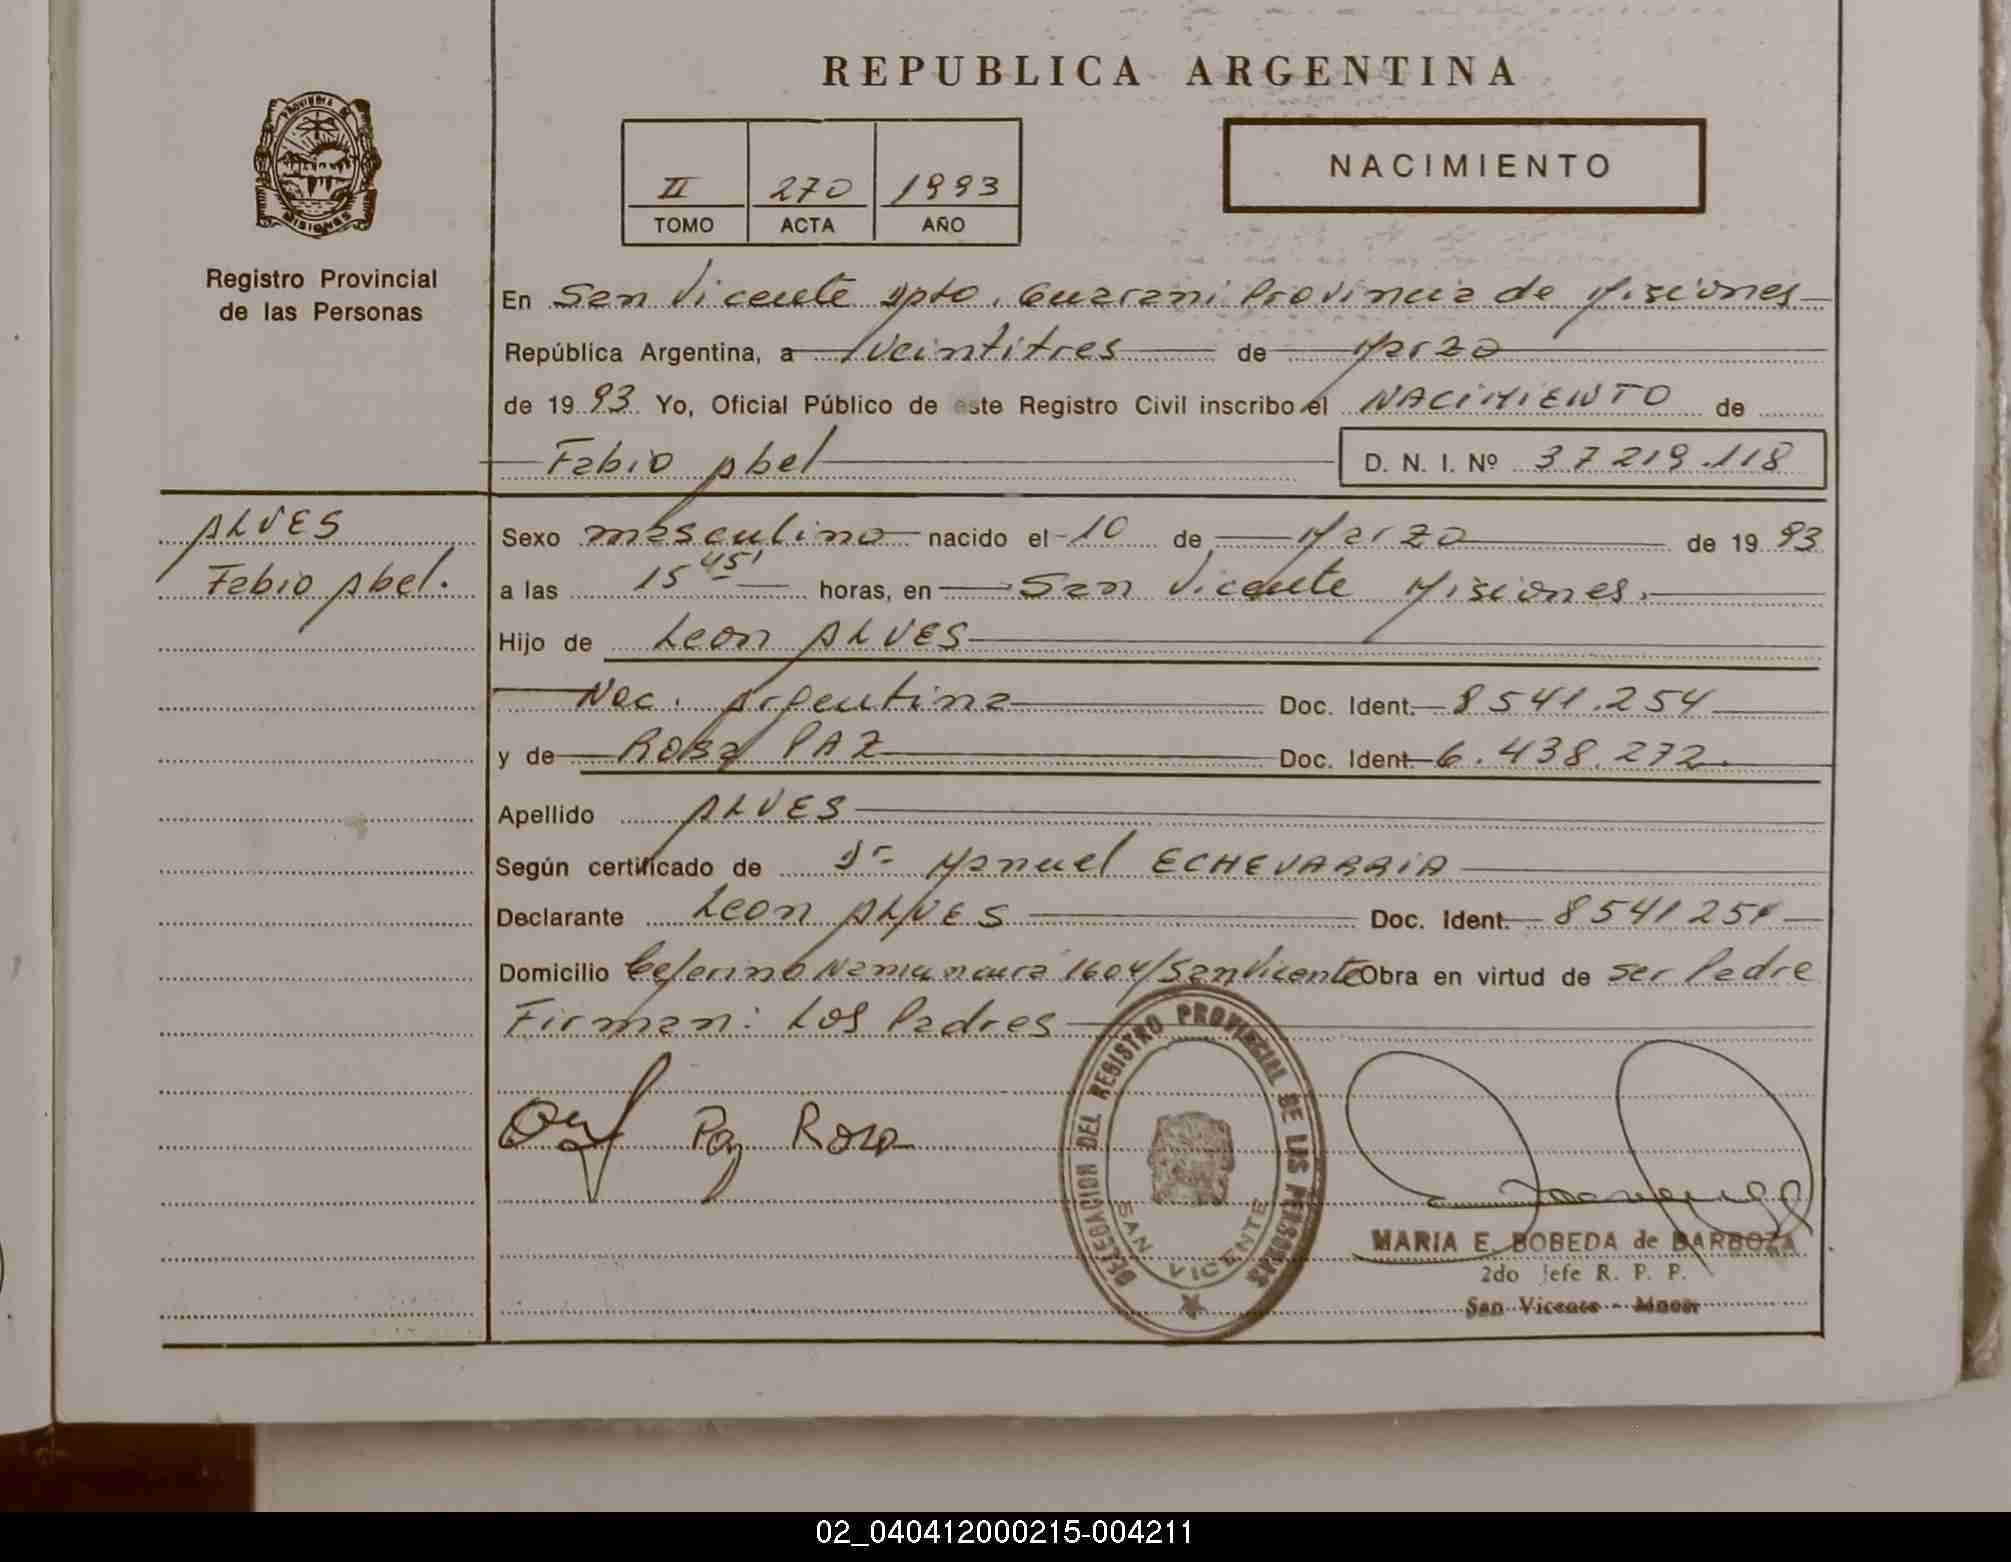 REPUBLICA ARGENTINA
PROVINCIA DE
MISIONES
Registro Provincial
de las Personas
II 270 1993
TOMO ACTA AÑO
NACIMIENTO
En San Vicente Dpto. Guarani Provincia de Misiones
República Argentina, a Veintitres de Marzo
de 1993 Yo, Oficial Público de este Registro Civil inscribo el NACIMIENTO de
Fabio Abel D. N. I. Nº 37219.118
ALVES
Fabio Abel.
Sexo masculino nacido el 10 de Marzo de 1993
a las 15 45' horas, en San Vicente Misiones.
Hijo de Leon ALVES
Nac. Argentina Doc. Ident. 8541.254
y de Rosa PAZ Doc. Ident. 6.438.272.
Apellido ALVES
Según certificado de Dr Manuel ECHEVARRIA
Declarante Leon ALVES Doc. Ident. 8541254
Domicilio Ceferino Namuncura 1604/San Vicente Obra en virtud de ser Padre
Firman: Los Padres
Paz Rosa
DELEGACION DEL REGISTRO PROVINCIAL DE LAS PERSONAS
SAN VICENTE
MARIA E. BOBEDA de BARBOZA
2do Jefe R. P. P.
San Vicente - Mnes
02_040412000215-004211